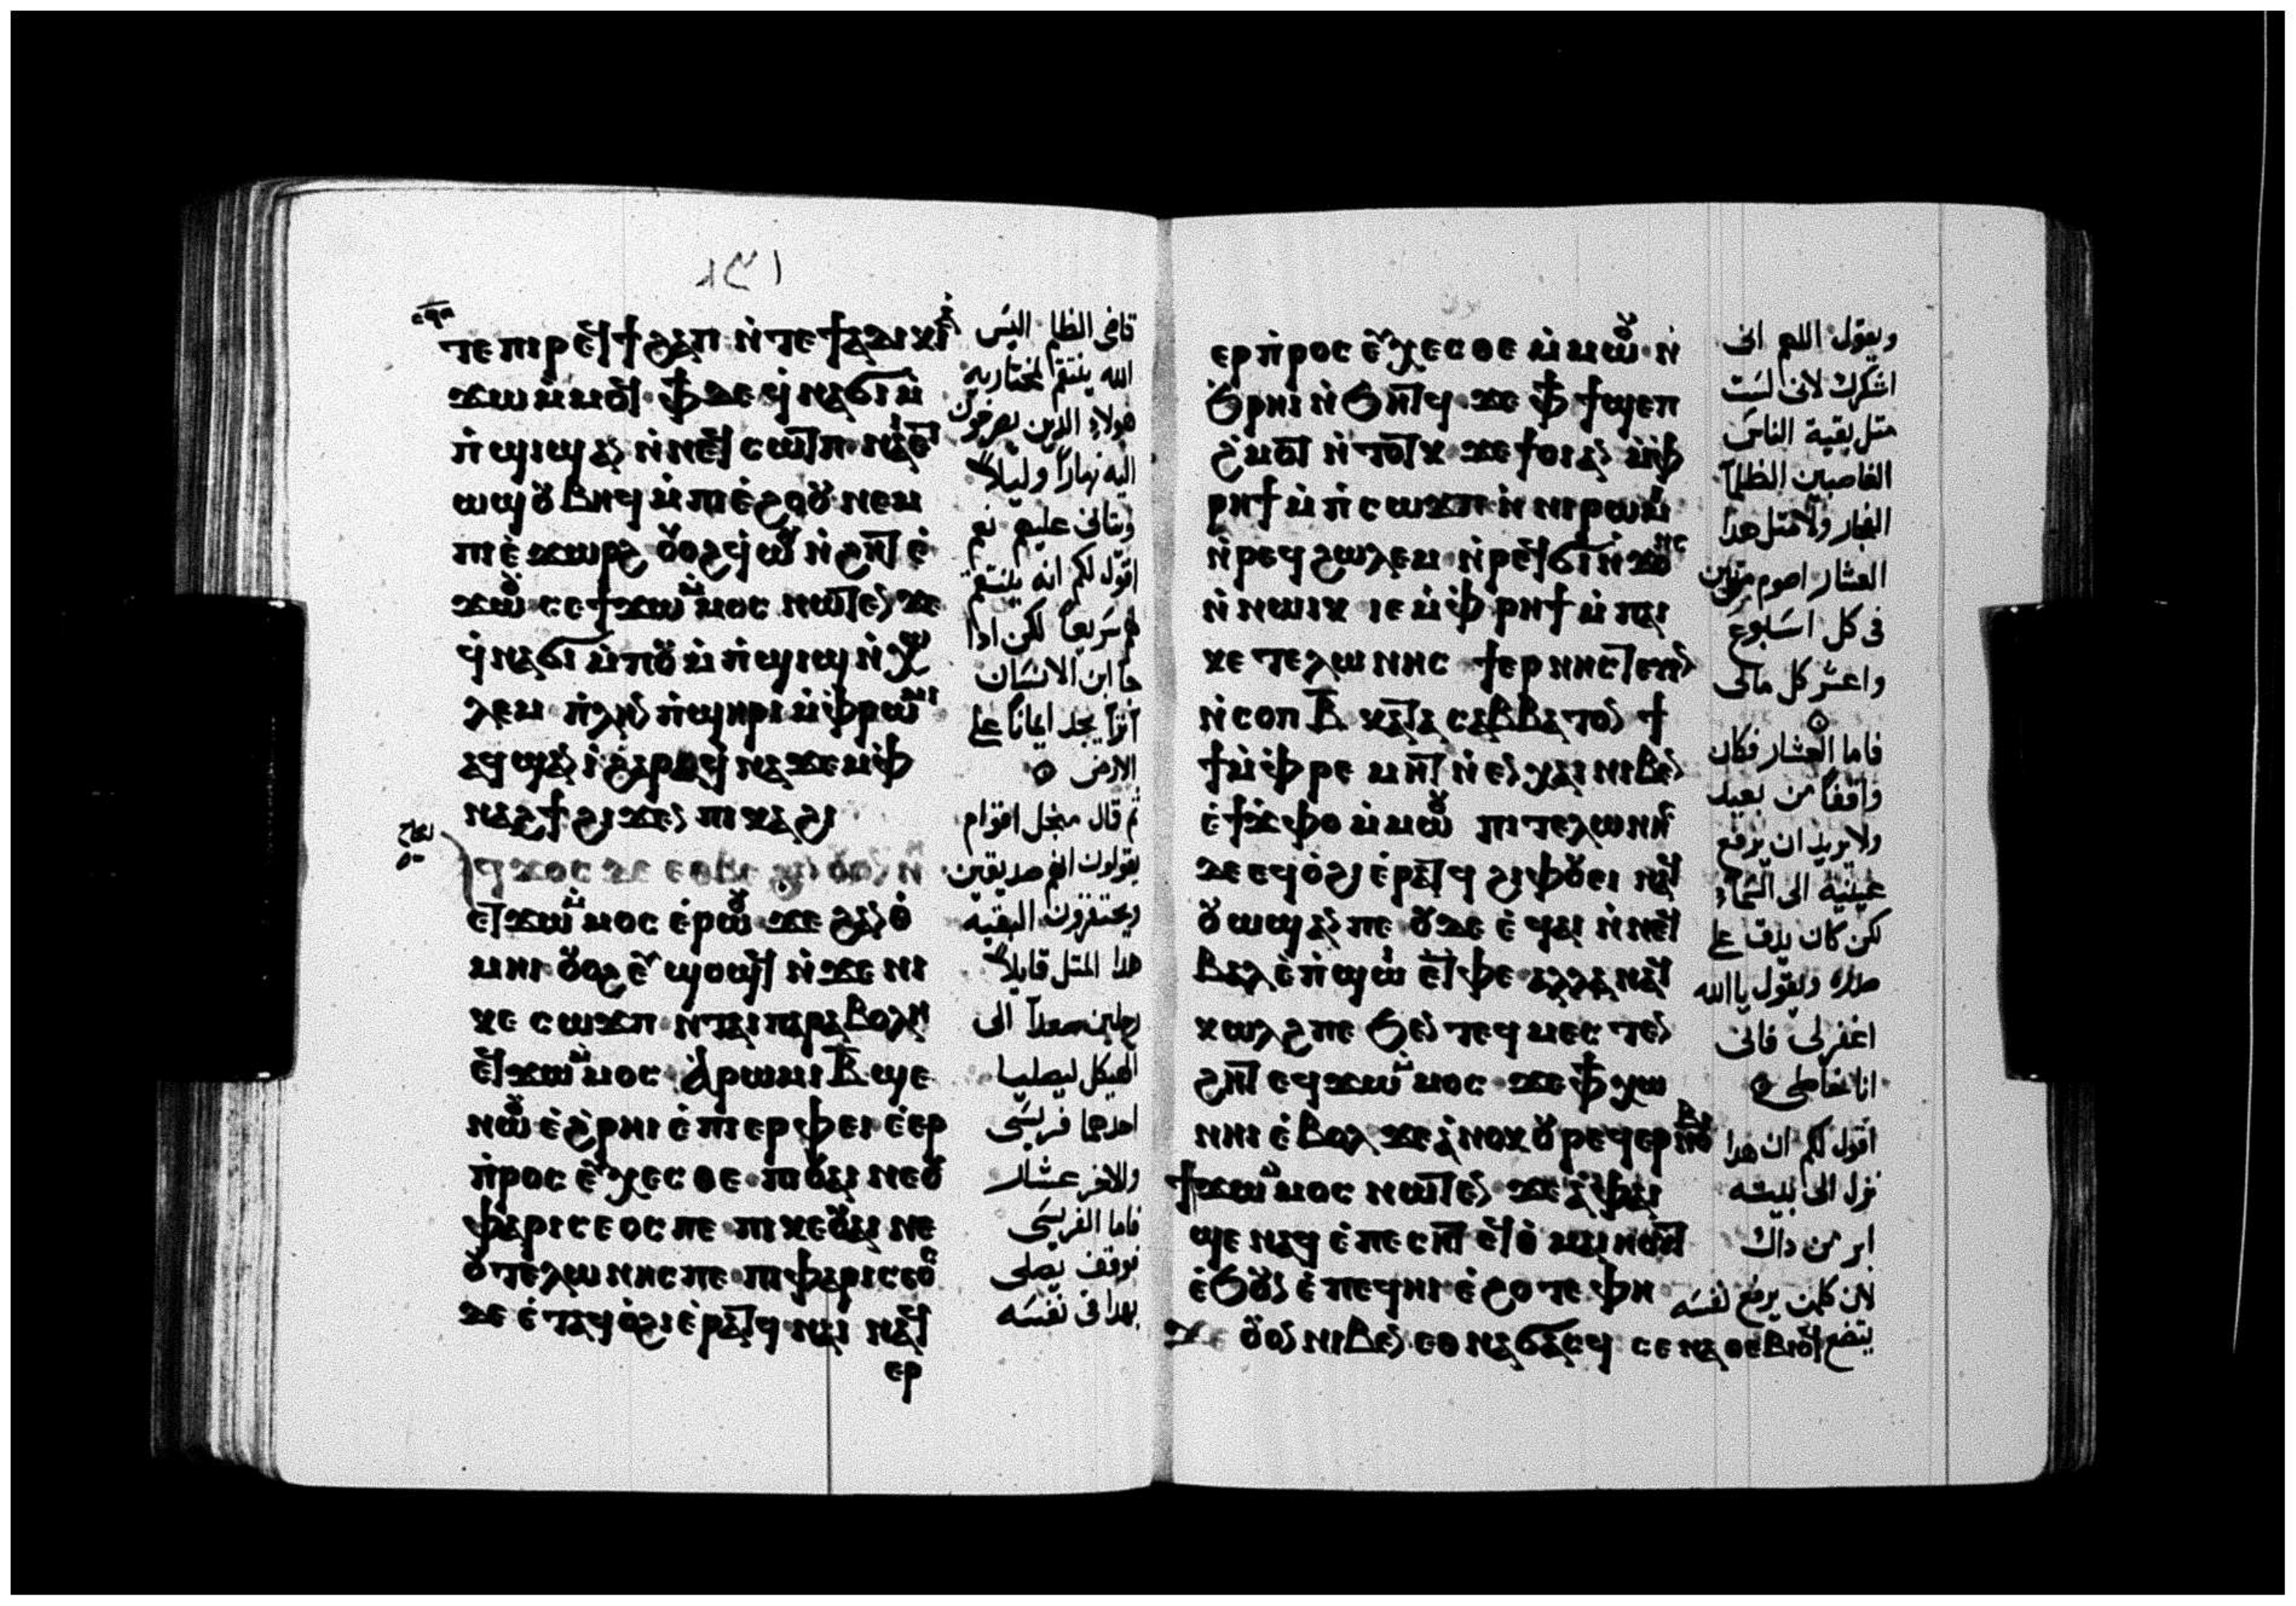 ⲧⲉⲡⲓⲣⲉϥϯϩⲁⲡ ⲛ̀ⲧⲉϯⲁⲇⲓⲕⲓⲁ̀
ϫⲱ ⲙ̀ⲙⲟϥ ⲫϯ ⲇⲉ ϥ̀ⲛⲁϭⲓ ⲙ̀
ⲡ̀ϣⲓϣ ⲁⲛ ⲛ̀ⲛⲉϥⲥⲱⲧⲡ ⲛⲁⲓ ⲉⲧ
ⲱϣ ⲟⲩⲃⲏϥ ⲙ̀ⲡⲓⲉ̀ϩⲟⲟⲩ ⲛⲉⲙ
ⲡⲓⲉ̀ϫⲱⲣϩ ⲟⲩⲟϩ ϥ̀ⲱⲟⲩ ⲛ̀ϩⲏⲧ ⲉ̀
ϫⲱⲟⲩ ⲥⲉ ϯϫⲱ ⲙ̀ⲙⲟⲥ ⲛⲱⲧⲉⲛ ϫⲉ
ϥ̀ⲛⲁϭⲓ ⲙ̀ⲡⲟⲩⲙ̀ⲡ̀ϣⲓϣ ⲛ̀ⲭⲱ
ⲗⲉⲙ ⲡ̀ⲗⲏⲛ ⲡ̀ϣⲏⲣⲓ ⲙ̀ⲫ̀ⲣⲱⲙⲓ
ⲁϥϣⲁⲛⲓ̀ ϩⲁⲣⲁ ϥ̀ⲛⲁϫⲉⲙ ⲫ̀
ⲛⲁϩϯ ϩⲓϫⲉⲛ ⲡⲓⲕⲁϩⲓ
ⲉⲧϫⲱ ⲙ̀ⲙⲟⲥ ⲉ̀ⲣⲱⲟⲩ ϫⲉ ϩⲁⲛⲟ̀
ⲙⲏⲓ ⲟⲩⲟϩ ⲉⲩϣⲟϣϥ ⲛ̀ϫⲉ ⲛⲓ
ⲕⲉ ⲥⲱϫⲡ ⲛ̀ⲧⲁⲓⲡⲁⲣⲁⲃⲟⲗⲏ
ⲉϥϫⲱ ⲙ̀ⲙⲟⲥ ⲣⲱⲙⲓ ⲃ̅ ϣⲉ
ⲛⲱⲟⲩ ⲉ̀ϩ̀ⲣⲏⲓ ⲉ̀ⲡⲓⲉⲣⲫⲉⲓ ⲉ̀ⲉⲣ
ⲡ̀ⲣⲟⲥⲉⲩⲭⲉⲥⲑⲉ ⲡⲓⲟⲩⲁⲓ ⲛⲉⲟⲩ
ⲫⲁⲣⲓⲥⲉⲟⲥ ⲡⲉ ⲡⲓⲕⲉⲟⲩⲁⲓ ⲛⲉ
ⲟⲩⲧⲉⲗⲱⲛⲏⲥ ⲡⲉ ⲡⲓⲫⲁⲣⲓⲥⲉⲟⲥ
ⲇⲉ ⲉ̀ⲧⲁϥⲟ̀ϩⲓ ⲉ̀ⲣⲁⲧϥ ⲛⲁⲓ ⲛⲁϥ
ⲉⲣ
قاضى الظلم اليس
الله ينتقم لمختاريه
هولاء الذين يصرخون
اليه نهاراً وليلاً
ويتانى عليهم نعم
اقول لكم انه ينتقم
لهم سريعاً لكن اذا
جا ابن الانسان
اترا يجد ايماناً على
الارض
ثم قال مجل اقوام
يقولون انهم صديقين
ويحتقرون البقيه
هدا المتل قايلاً
رجلين صعدا الى
الهيكل ليصليا
احدهما فريسى
والاخر عشار
فاما الفريسى
فوقف يصلى
بهدا فى نفسه
ⲉⲣⲡ̀ⲣⲟⲥⲉⲩⲭⲉⲥⲑⲉ ⲙ̀ⲙⲱⲟⲩ ⲛ̀
ϧ̀ⲣⲏⲓ ⲛ̀ϧⲏⲧϥ ϫⲉ ⲫϯ ϯϣⲉⲡ
ϩ̀ⲙⲟⲧ ⲛ̀ⲧⲟⲧⲕ ϫⲉ ϯⲟⲓ ⲁⲛ ⲙ̀ⲫ̀
ⲣⲏϯ ⲙ̀ⲡ̀ⲥⲱϫⲡ ⲛ̀ⲛⲓⲣⲱⲙⲓ
ⲛ̀ⲣⲉϥϩⲱⲗⲉⲙ ⲛ̀ⲣⲉϥϭⲓⲛ̀ϫⲟⲛⲥ
ⲛ̀ⲛⲱⲓⲕ ⲓⲉ ⲙ̀ⲫ̀ⲣⲏϯ ⲙ̀ⲡⲁⲓ
ⲕⲉ ⲧⲉⲗⲱⲛⲏⲥ ϯⲉⲣⲛⲏⲥⲧⲉⲩⲓⲛ
ⲛ̀ⲥⲟⲡ ⲃ̅ ⲕⲁⲧⲁ ⲥⲁⲃⲃⲁⲧⲟⲛ ϯ
ϯⲙ̀ⲫ̀ⲣⲉⲙⲏⲧ ⲛ̀ⲉⲛⲭⲁⲓ ⲛⲓⲃⲉⲛ
ⲉ̀ϯϫ̀ⲫⲟ ⲙ̀ⲙⲱⲟⲩ ⲡⲓⲧⲉⲗⲱⲛⲏⲥ
ⲇⲉ ⲉϥⲟ̀ϩⲓ ⲉ̀ⲣⲁⲧϥ ϩⲓⲫⲟⲩⲉⲓ ⲛⲁϥ
ⲟⲩⲱϣ ⲁⲛ ⲡⲉ ⲟⲩⲇⲉ ⲉ̀ϥⲁⲓ ⲛ̀ⲛⲉϥ
ⲃⲁⲗ ⲉ̀ⲡ̀ϣⲱⲓ ⲉ̀ⲧ̀ⲫⲉ ⲁⲗⲗⲁ ⲛⲁϥ
ⲕⲱⲗϩ ⲡⲉ ϧⲉⲛ ⲧⲉϥⲙⲉⲥⲧⲉⲛ
ϩⲏⲧ ⲉϥϫⲱ ⲙ̀ⲙⲟⲥ ϫⲉ ⲫϯ ⲭⲱ
ⲛⲏⲓ ⲉ̀ⲃⲟⲗ ϫⲉ ⲁ̀ⲛⲟⲕ ⲟⲩⲣⲉϥⲉⲣⲛⲟⲃⲓ
ϯϫⲱ ⲙ̀ⲙⲟⲥ ⲛⲱⲧⲉⲛ ϫⲉ ⲁ̀ ⲫⲁⲓ
ϣⲉ ⲛⲁϥ ⲉ̀ⲡⲉⲥⲏⲧ ⲉϥⲑ̀ⲙⲁⲓⲏⲟⲩⲧ
ⲉ̀ϧⲟⲩⲛ ⲉ̀ⲡⲉϥⲏⲓ ⲉ̀ϩⲟⲧⲉ ⲫⲏ
ϫⲉ ⲟⲩⲟⲛ ⲛⲓⲃⲉⲛ ⲉⲑⲛⲁϭⲁⲥϥ ⲥⲉⲛⲁⲑⲉⲃⲓⲟϥ
ويقول اللهم انى
اشكرك لانى لست
متل بقية الناس
الغاصبين الظلمه
الفجار ولا متل هدا
العشار اصوم مرتين
فى كل اسبوع
واعشر كل مالى
فاما العشار فكان
واقفاً من بعيد
ولا يريد ان يرفع
عينيه الى السماء
لكن كان يدق على
صدره ويقول يا الله
اغفر لى فانى
انا خاطى
اقول لكم ان هدا
نزل الى بيته
ابر من داك
لان كلمن يرفع نفسه
يتضع